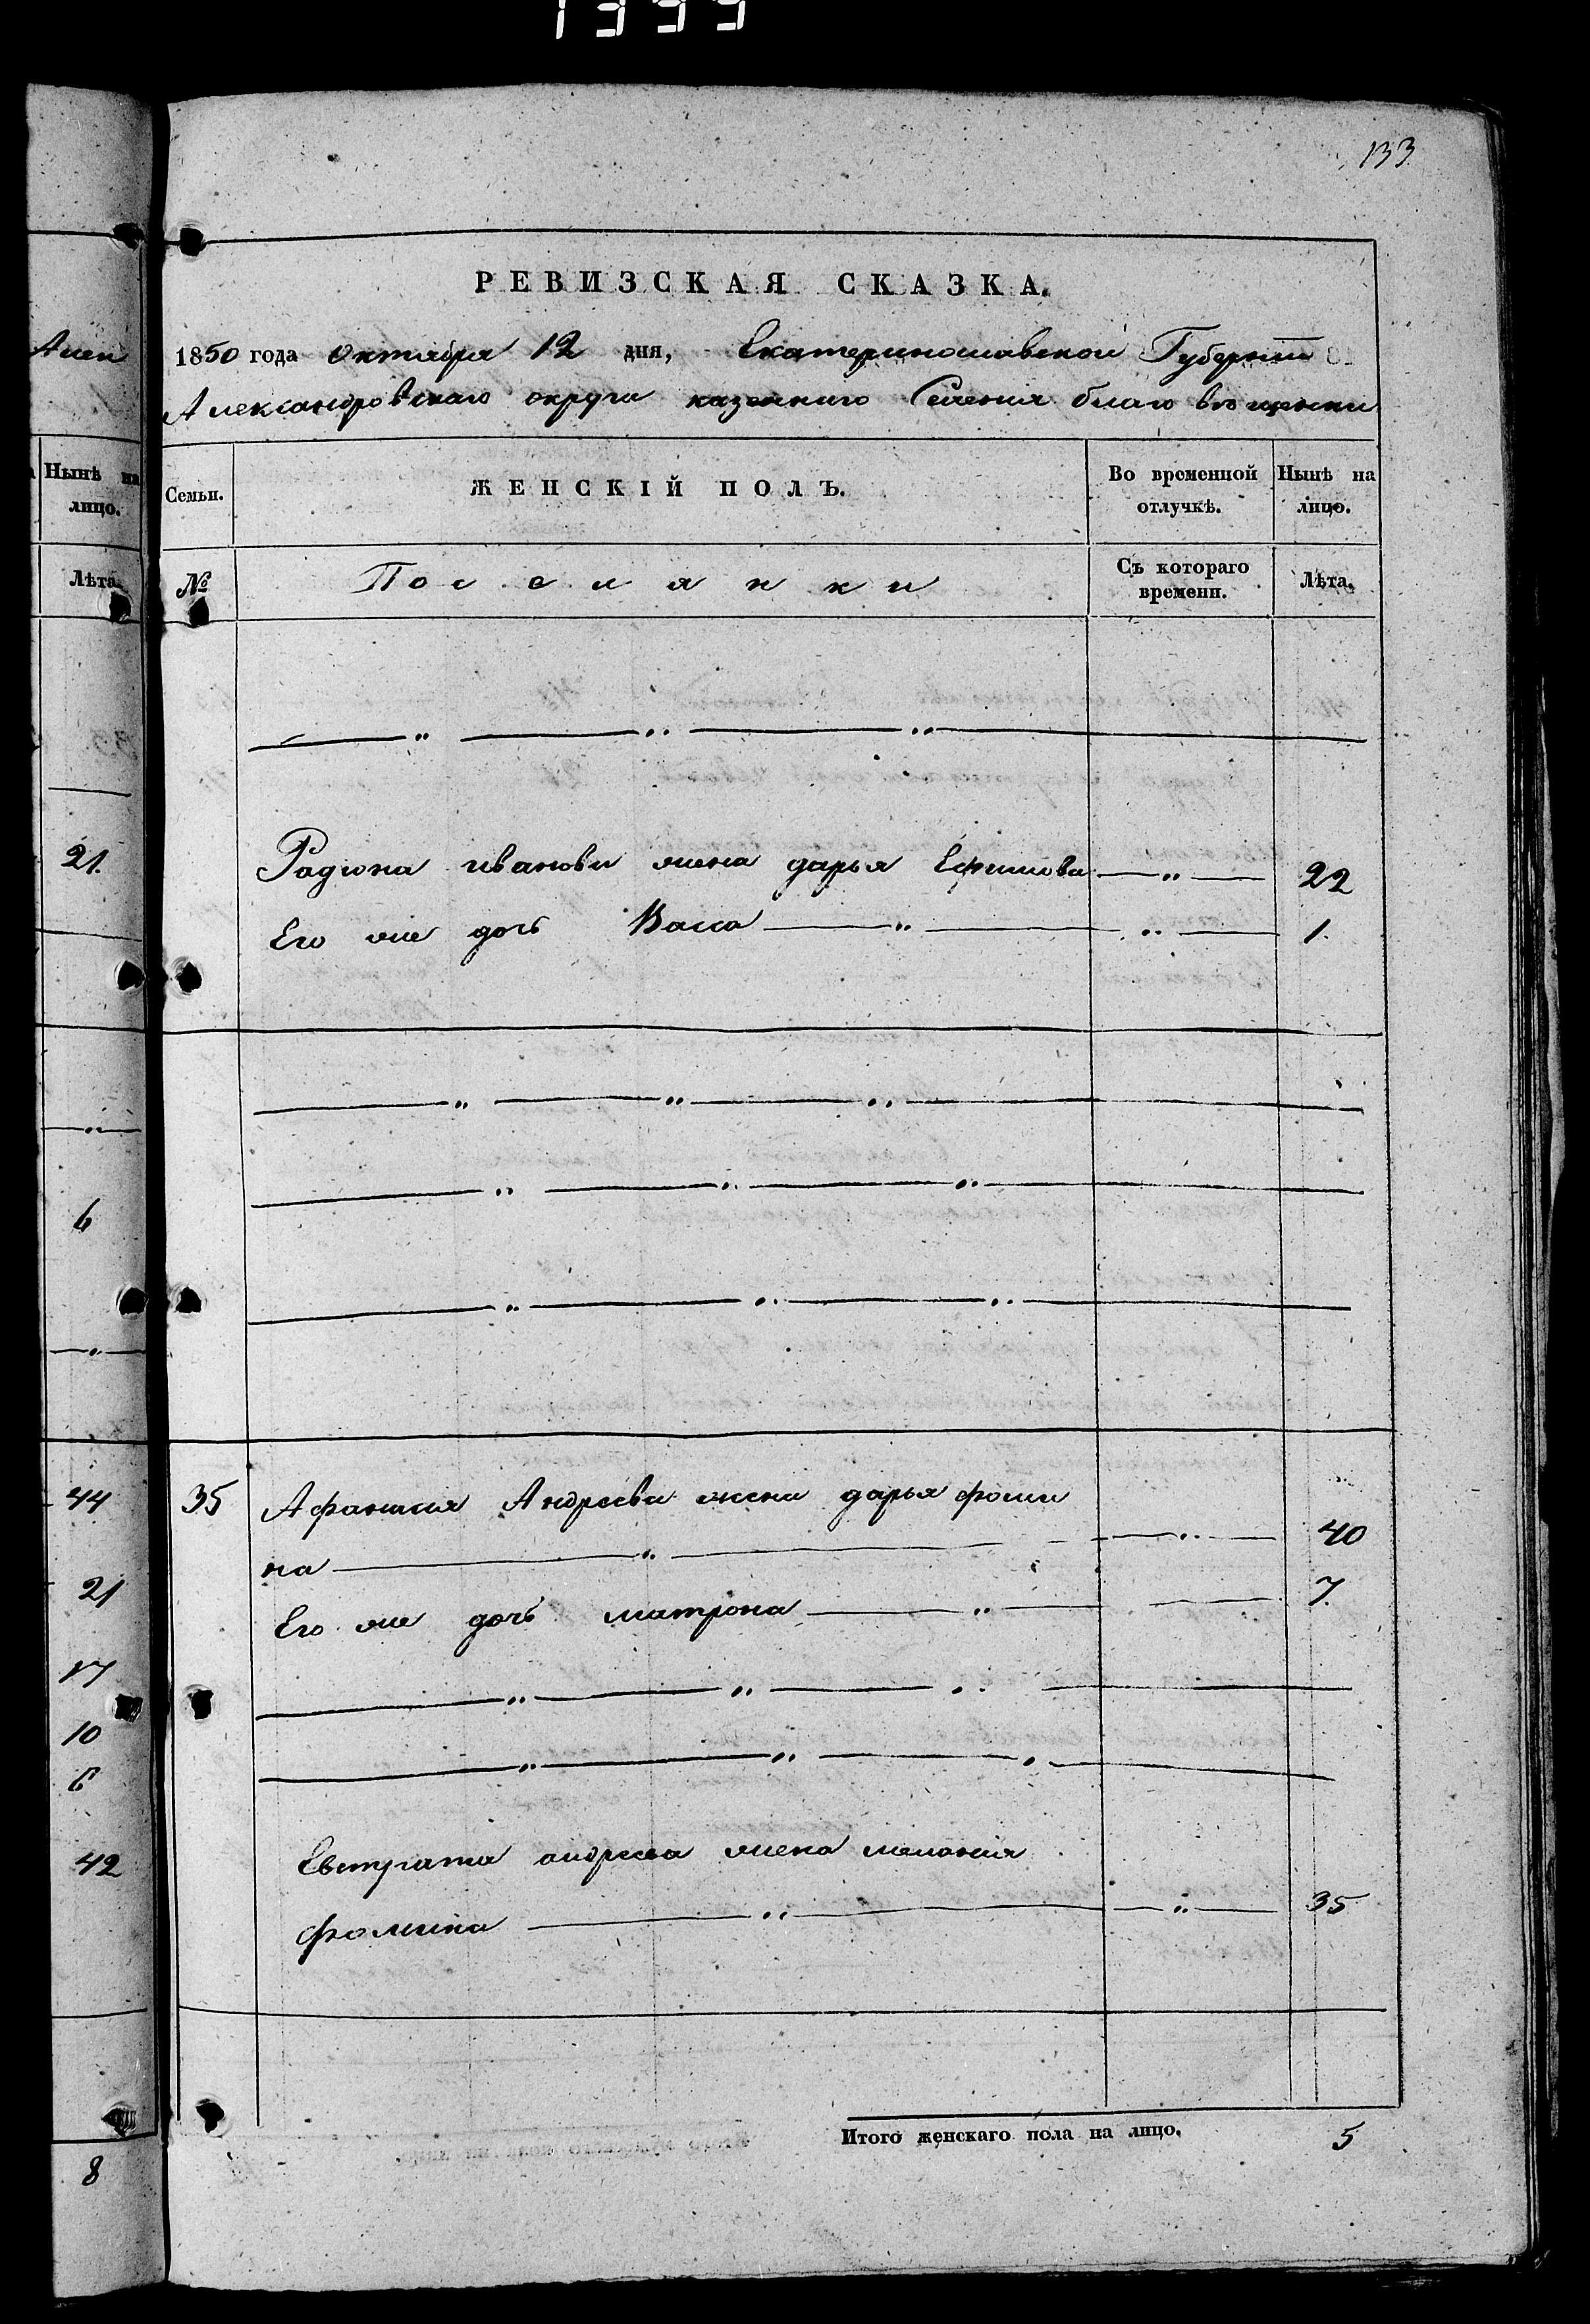 1399
133
РЕВИЗСКАЯ СКАЗКА.
1850 года октября 12 дня, Екатеринославской Губерніи
Александровскаго округа казеннаго Селенія благовещенки
Семьи. ЖЕНСКІЙ ПОЛЪ. Во временной отлучкѣ. Нынѣ на лицо.
№ Поселянки Съ котораго времени. Лѣта.
Радиона иванова жена дарья Ефимова 22
Его же дочь Васса 1.
35 Афанасия Андреева жена дарья фоми
на 40
Его же дочь матрона 7.
Евстрата андреева жена мелания
фомина 35
Итого женскаго пола на лицо. 5
Нынѣ на
лицо.
Лѣта.
21.
6
44
21
17
10
6
42
8